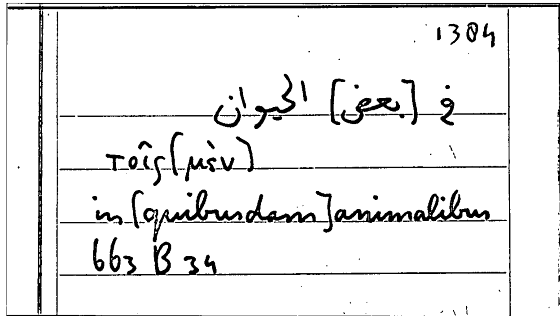 1304
في [بعض] الحيوان
τοῖς (μὲν)
in [quibusdam] animalibus
663 B 34